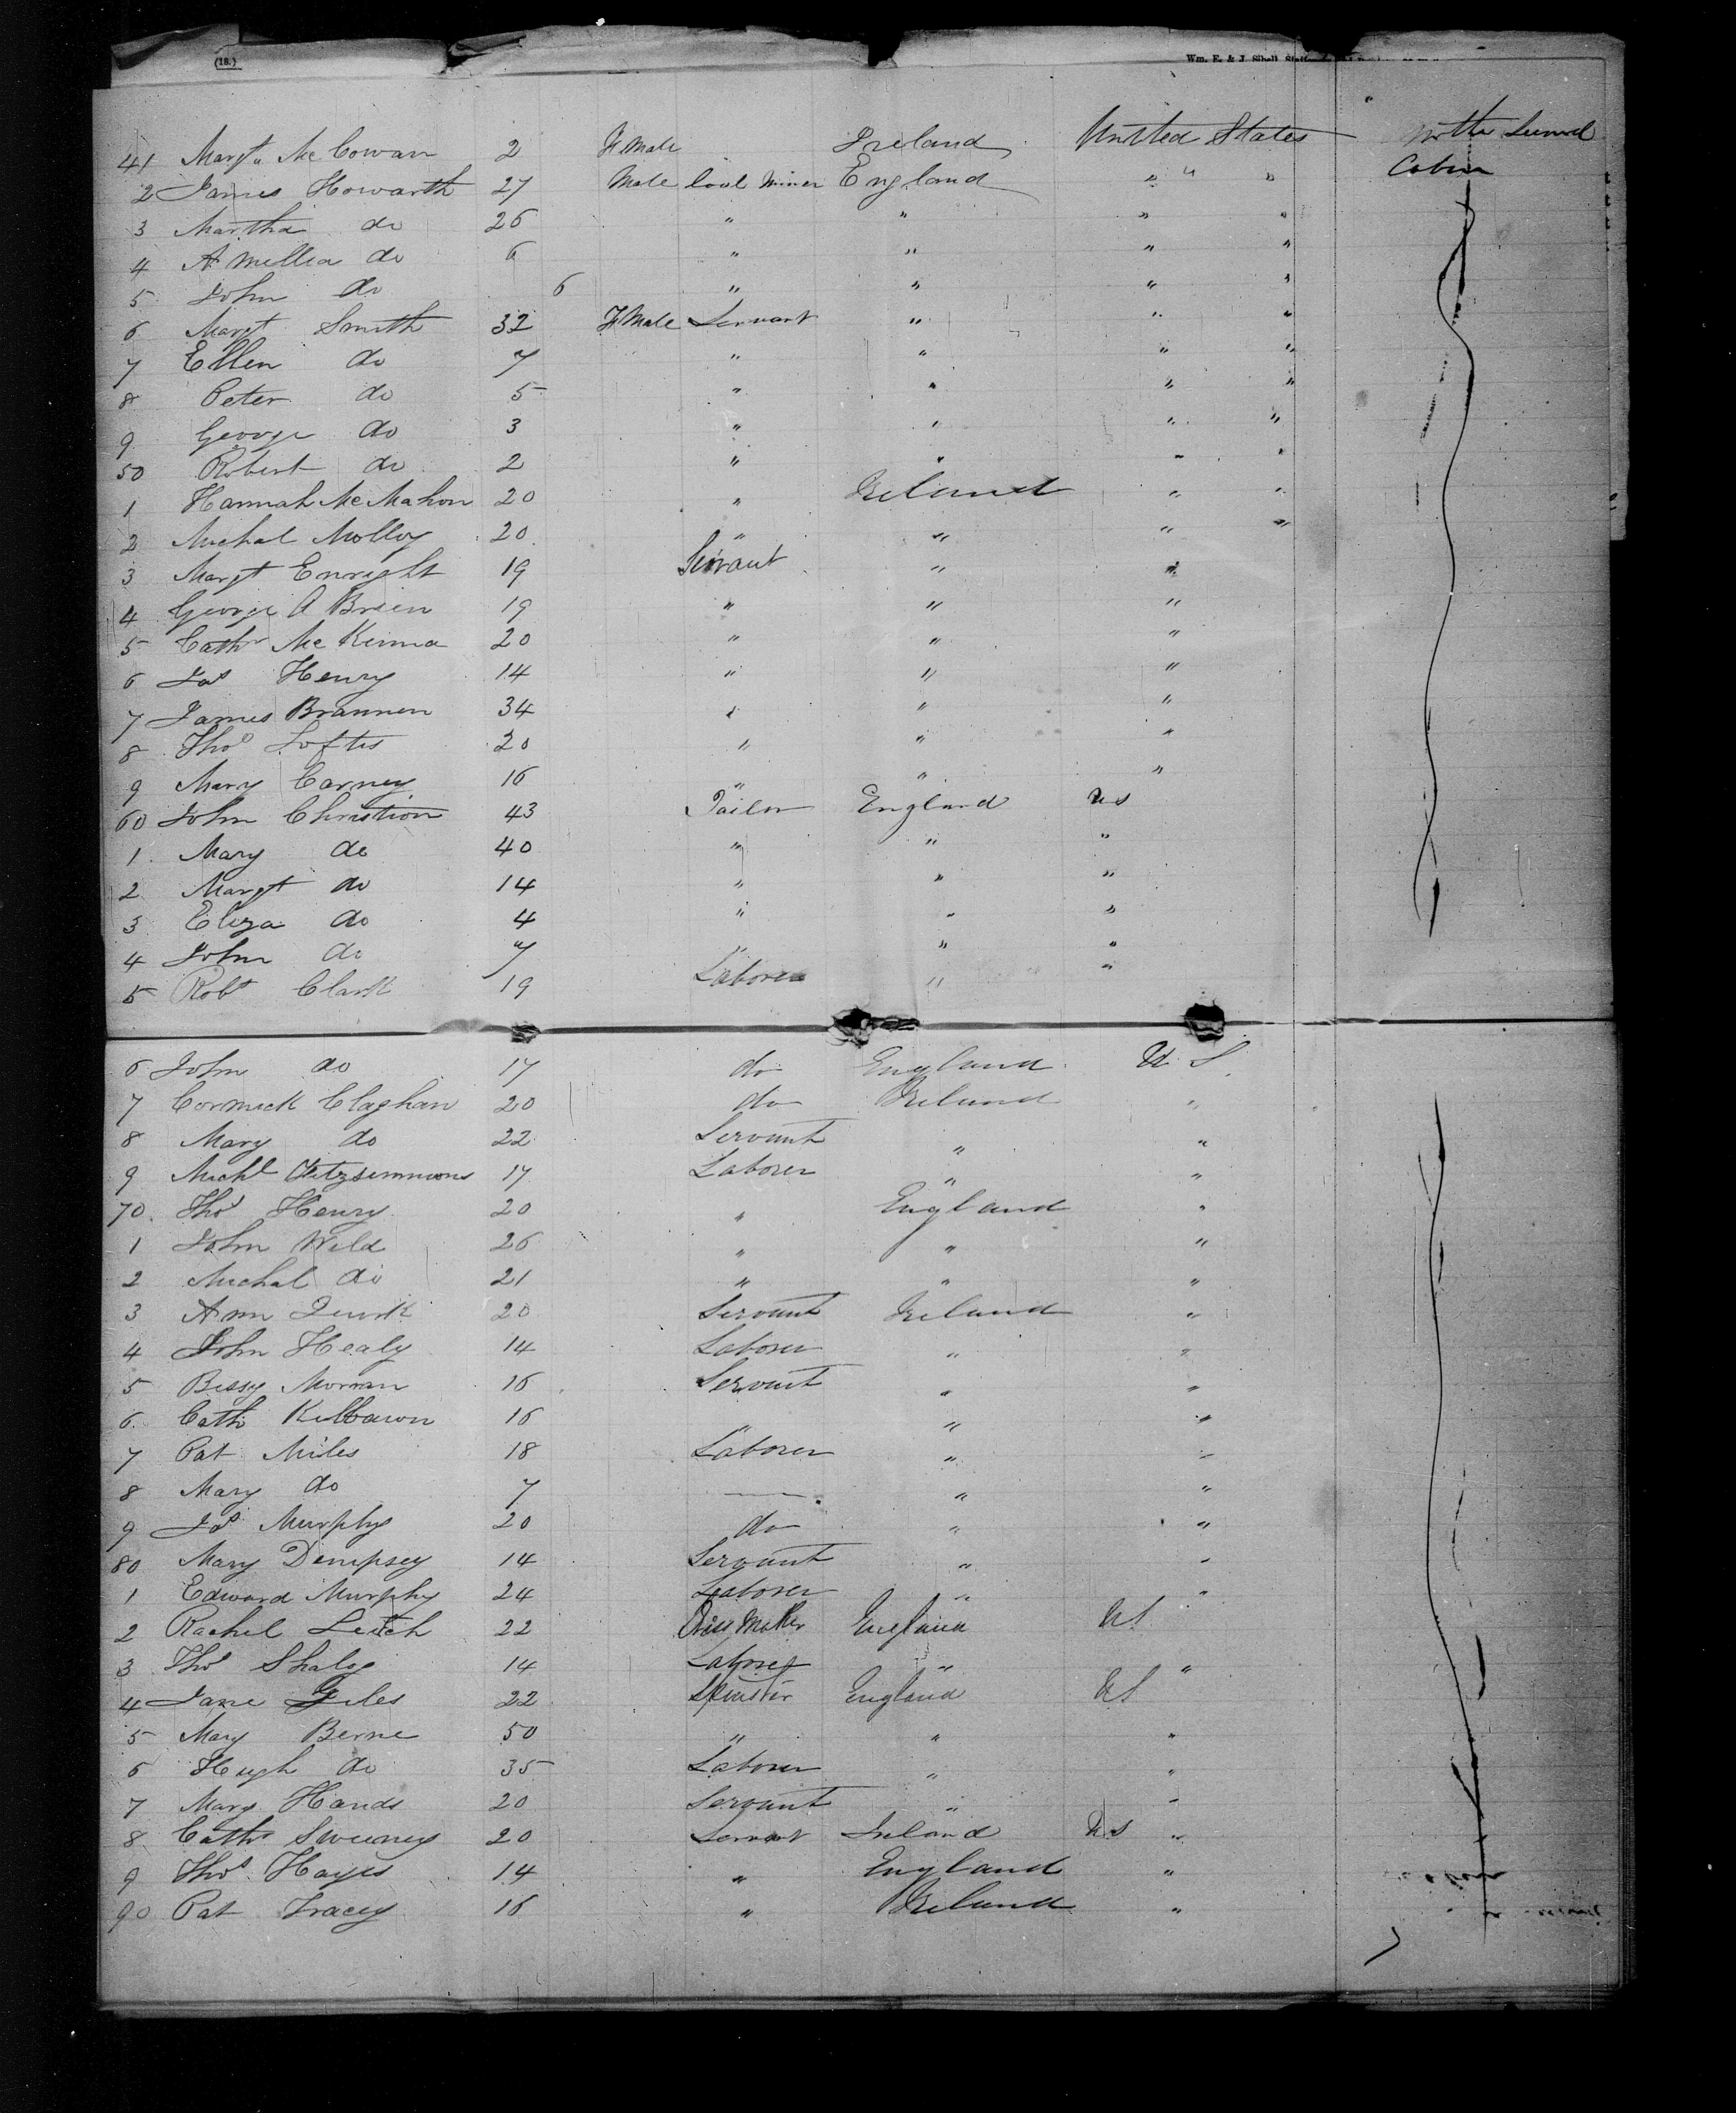 (18.) Wm. E. & J. Sibell
41 Margt McCowan 2 F Male Ireland United States
2 James Howarth 27 Male Coal Miner England " " " Cabin
3 Martha do 26 " " " "
4 Amellia do 6 " " " "
5 John do 6 " " " "
6 Margt Smith 32 F Male Servant " " "
7 Ellen do 7 " " " "
8 Peter do 5 " " " "
9 George do 3 " " " "
50 Robert do 2 " " " "
1 Hannah McMahon 20 " Ireland " "
2 Michal Molloy 20 " " " "
3 Margt Enright 19 Servant " "
4 George O Brien 19 " " "
5 Cathr McKenna 20 " " "
6 Jas Henry 14 " " "
7 James Brannen 34 " " "
8 Thos Loftis 20 " " "
9 Mary Carney 16 " " "
60 John Christion 43 Tailor England U S
1 Mary do 40 " " "
2 Margt do 14 " " "
3 Eliza do 4 " " "
4 John do 7 " " "
5 Robt Clark 19 Laborer " "
6 John do 17 do England U S.
7 Cormick Claghan 20 do Ireland "
8 Mary do 22 Servant " "
9 Michl Fitzsimmons 17 Laborer " "
70 Thos Henry 20 " England "
1 John Weld 26 " " "
2 Michal do 21 " " "
3 Ann Quirk 20 Servant Ireland "
4 John Healy 14 Laborer " "
5 Bessy Morran 16 Servant " "
6 Cath Kilbawn 16 " " "
7 Pat Miles 18 Laborer " "
8 Mary do 7 — " "
9 Jas Murphy 20 do " "
80 Mary Dempsey 14 Servant " "
1 Edward Murphy 24 Laborer " "
2 Rachel Leitch 22 Dress Maker England U S
3 Thos 14 Laborer " "
4 Jane Giles 22 Spinster England U S
5 Mary Berne 50 " " "
6 Hugh do 35 Laborer " "
7 Mary Hands 20 Servant " "
8 Cathr Sweeney 20 Servant Ireland U S "
9 Thos Hayes 14 " England "
90 Pat Tracey 16 " Ireland "